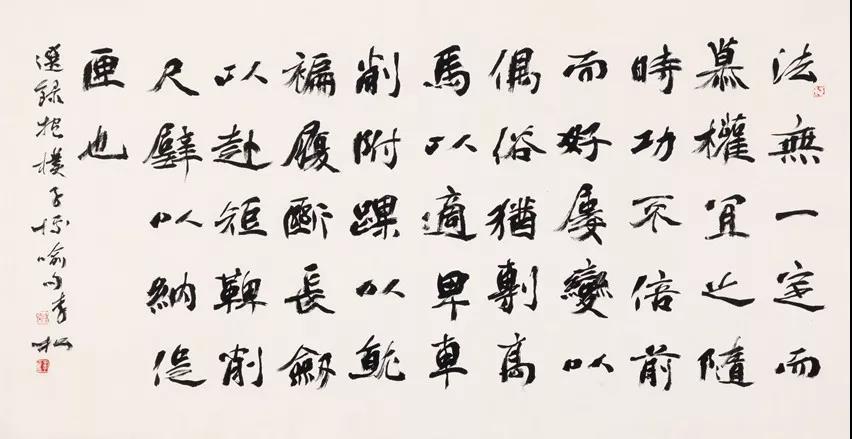 法無一定而
慕權宜之隨
時功不倍前
而好屢變以
偶俗猶剸高
馬以適卑車
削附踝以就
褊履斷長劔
以赴短鞞削
尺璧以納促
匣也
選錄抱樸子博喻句李松